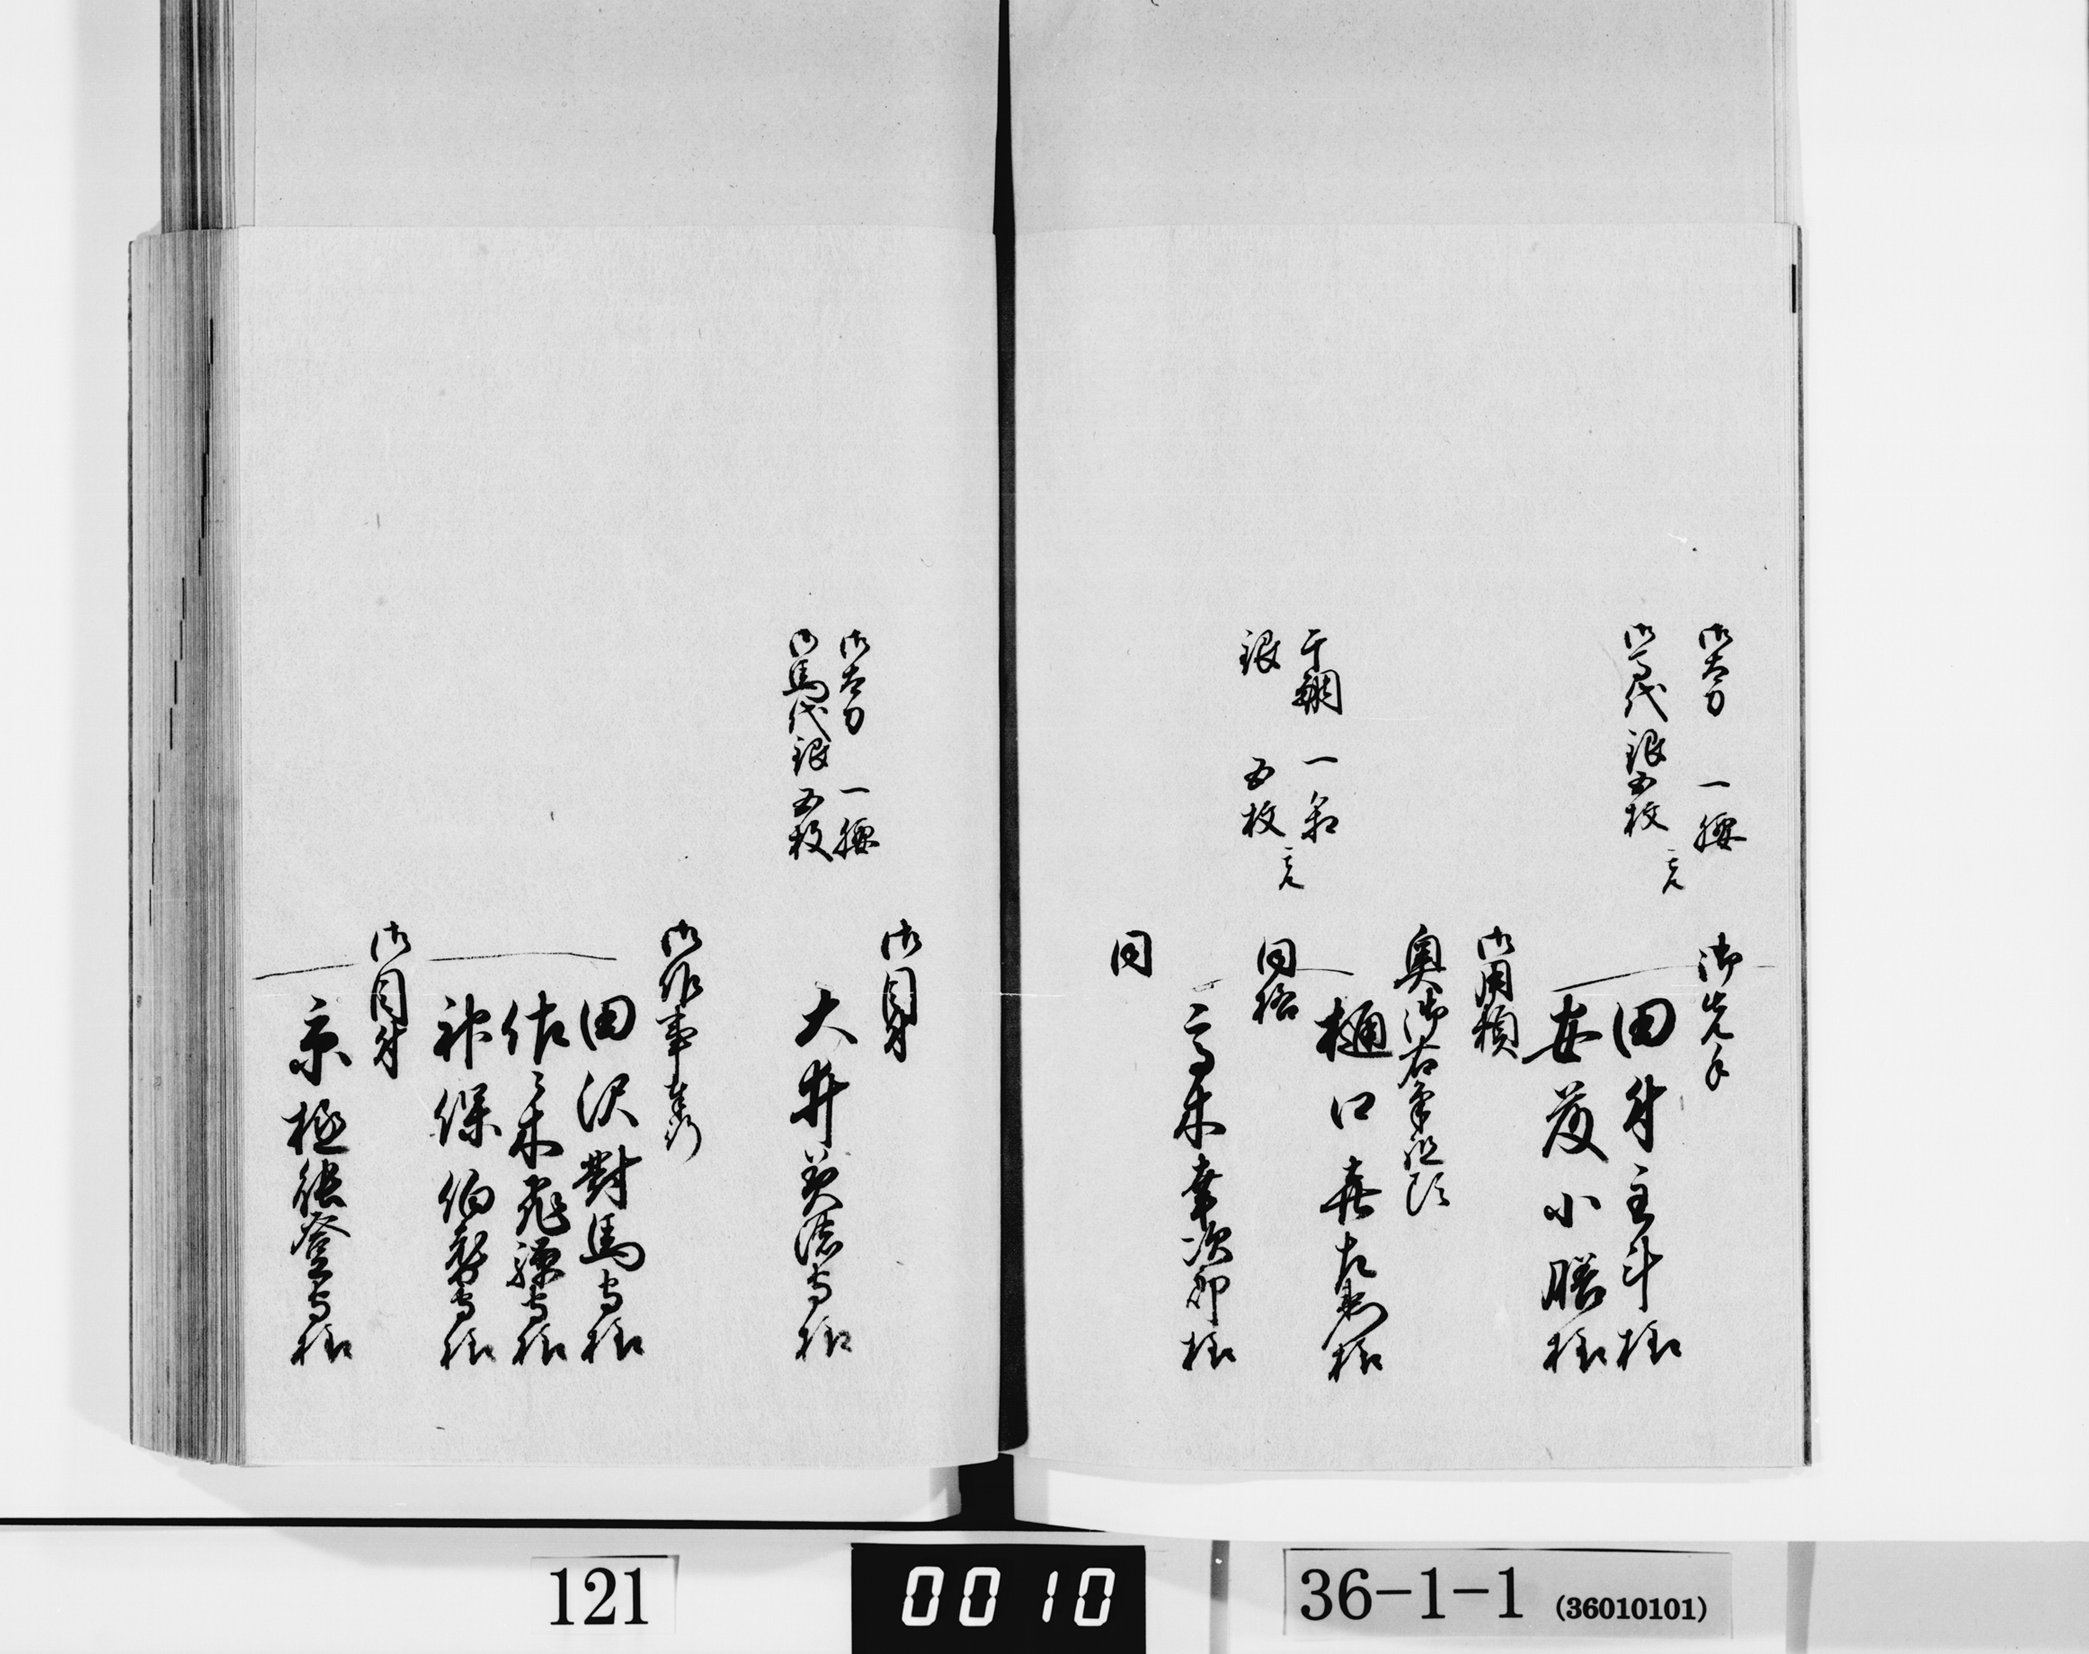 御太刀 一腰
御馬代 銀五枚ツヽ
御先手
田付主計様
安藤小膳様
御用頼
奥御右筆組頭
干鯛 一箱
銀 五枚ツヽ
樋口喜左衛門様
同格
高木幸次郎様
同
御目付
御太刀 一腰
御馬代銀五枚
大井美濃守様
御作事奉行
田沢對馬守様
佐々木飛騨守様
神保伯耆守様
御目付
京極能登守様
121
0010
36-1-1 (36010101)